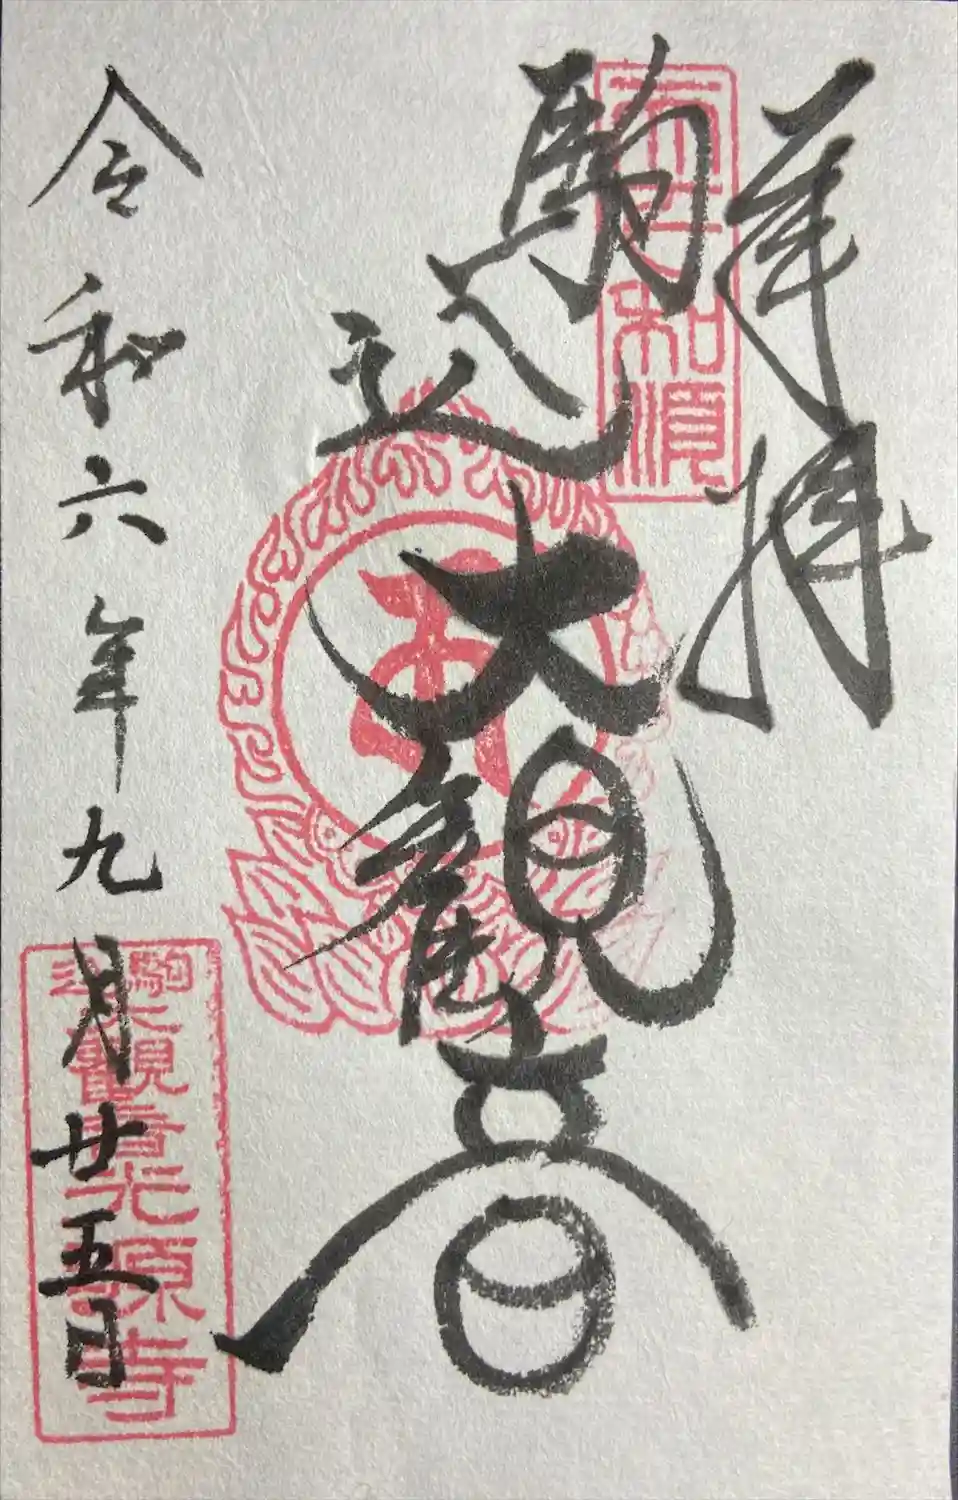 奉拝
駒込
大観音
令和六年九月廿五日
天下和順
駒込大観音光源寺